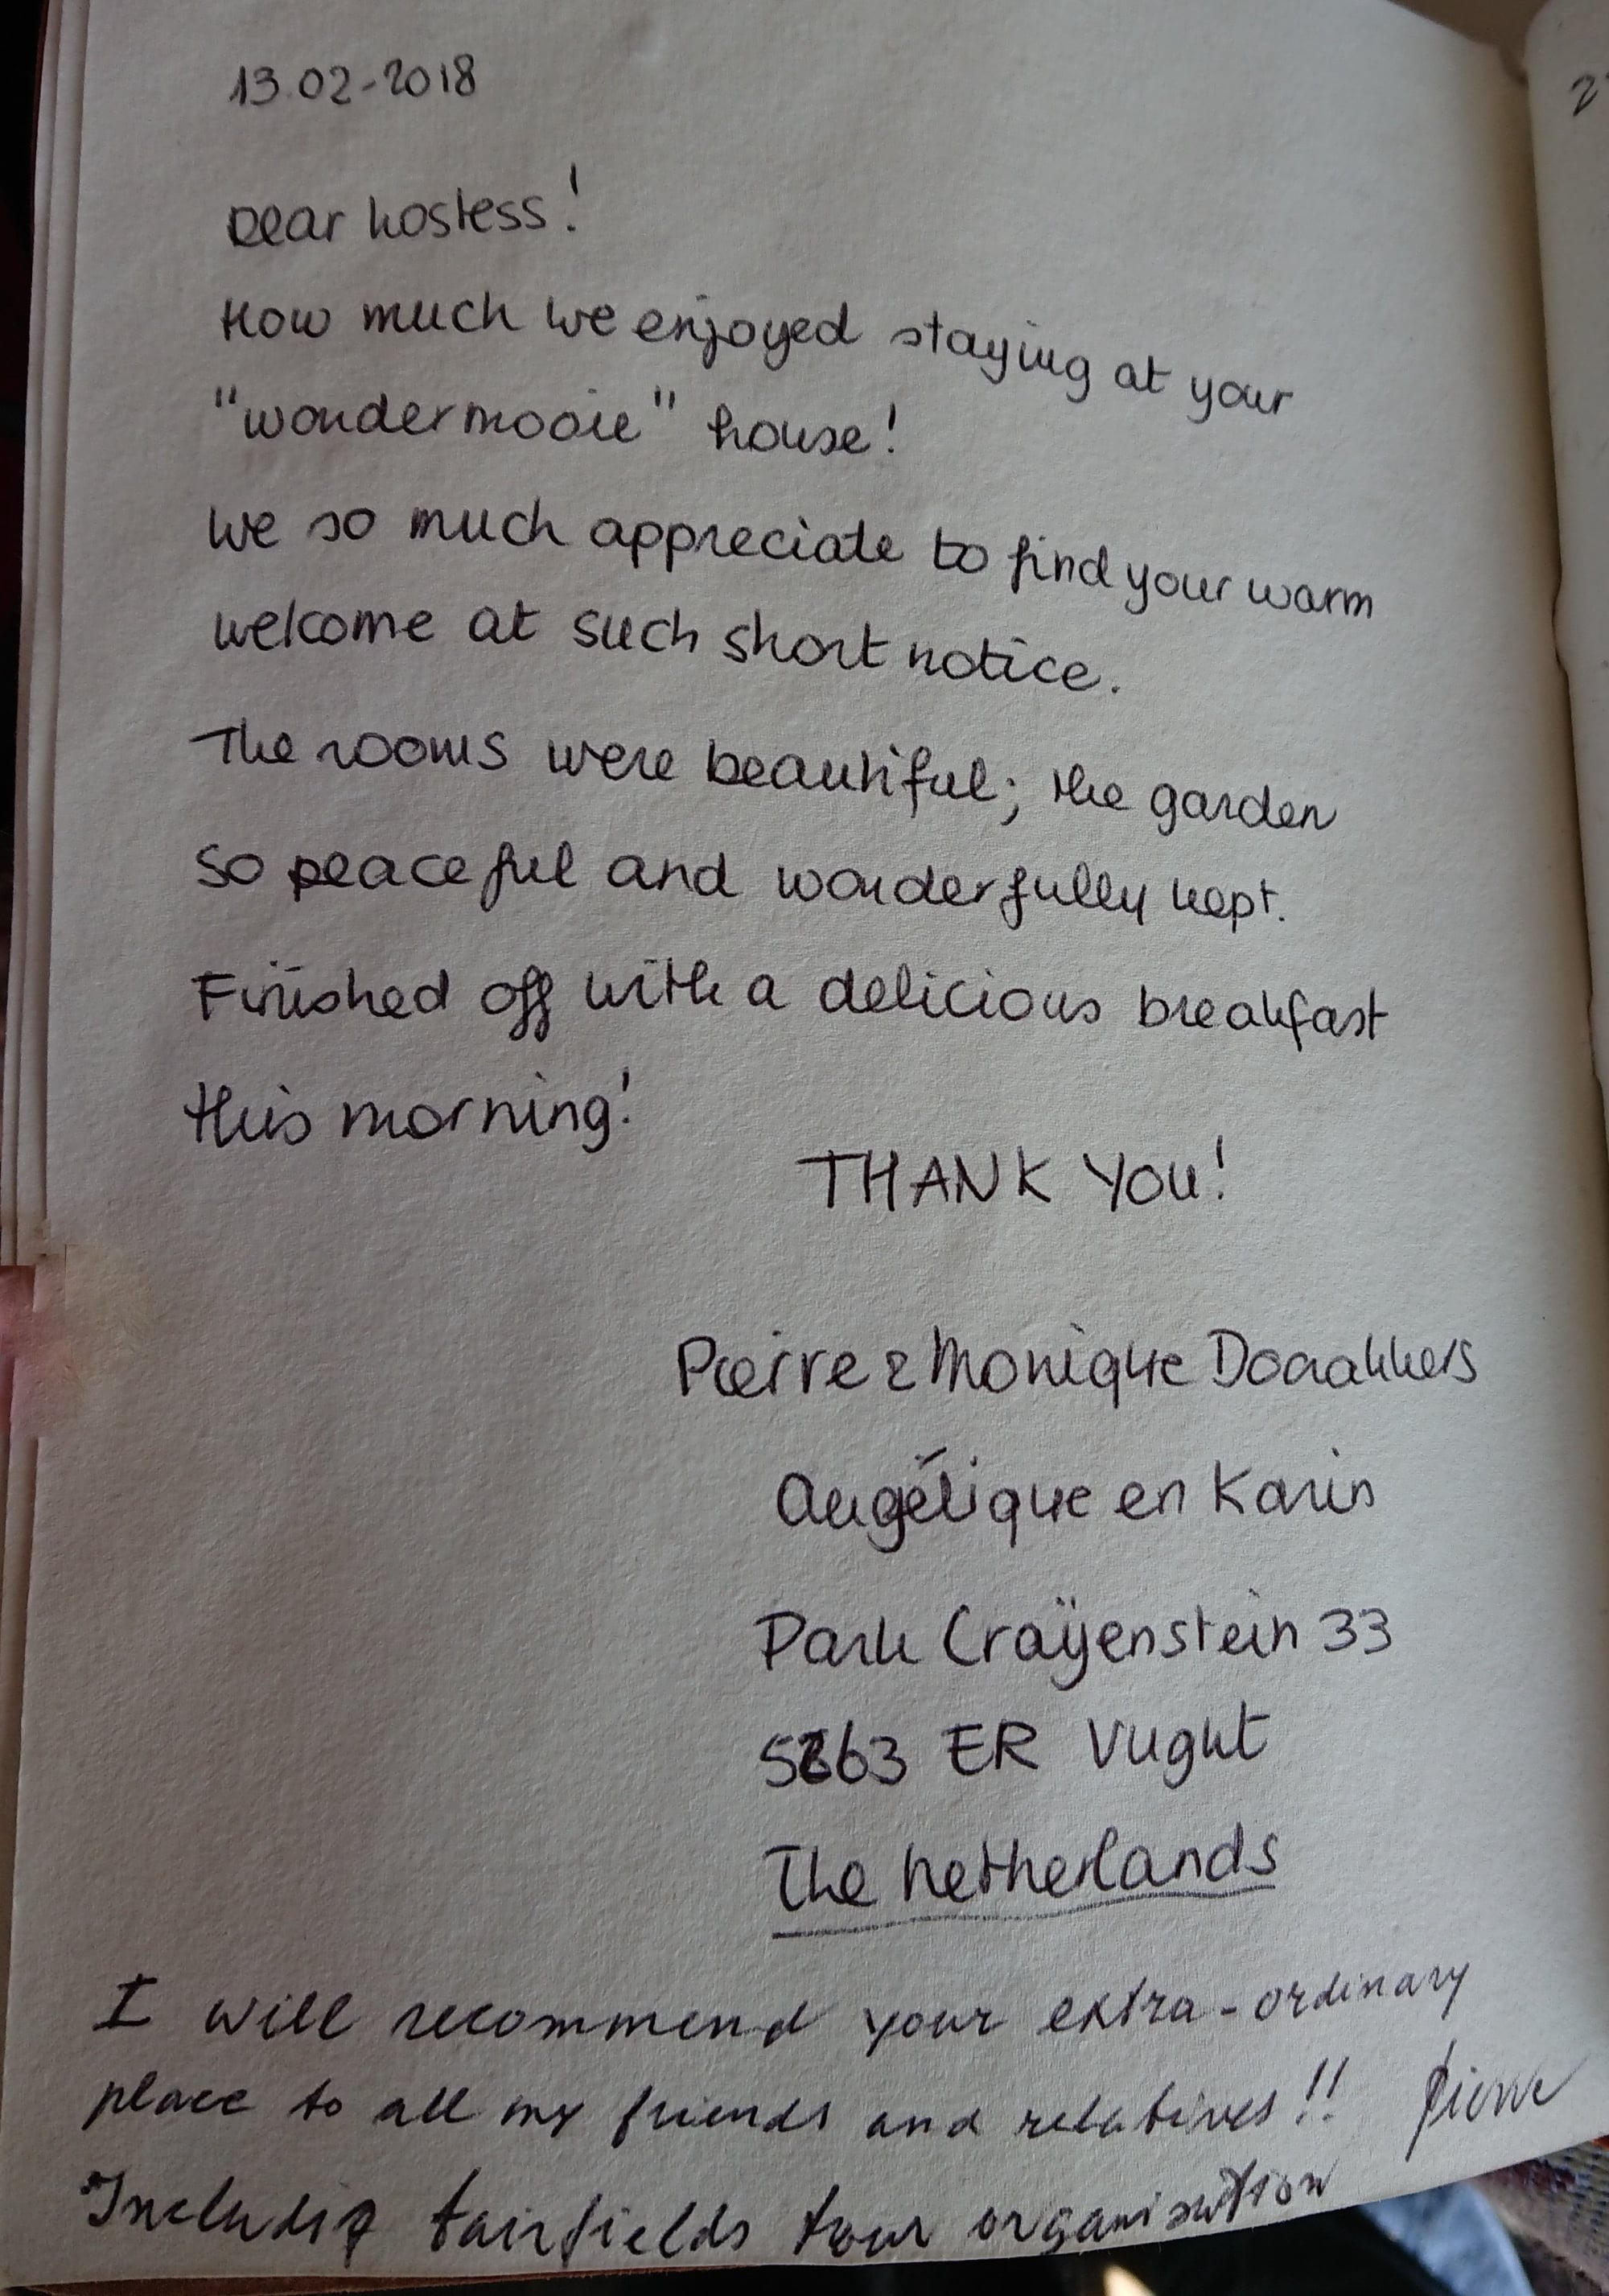 13.02-2018
Dear hostess!
How much we enjoyed staying at your
"wondermooie" house!
we so much appreciate to find your warm
welcome at such short notice.
The rooms were beautiful; the garden
so peaceful and wonderfully kept.
Finished off with a delicious breakfast
this morning!
THANK YOU!
Pierre & Monique Donakkers
Angélique en Karin
Park Craÿenstein 33
5263 ER Vught
The Netherlands
I will recommend your extra-ordinary
place to all my friends and relatives!! Pierre
Includig fairfields tour organisation